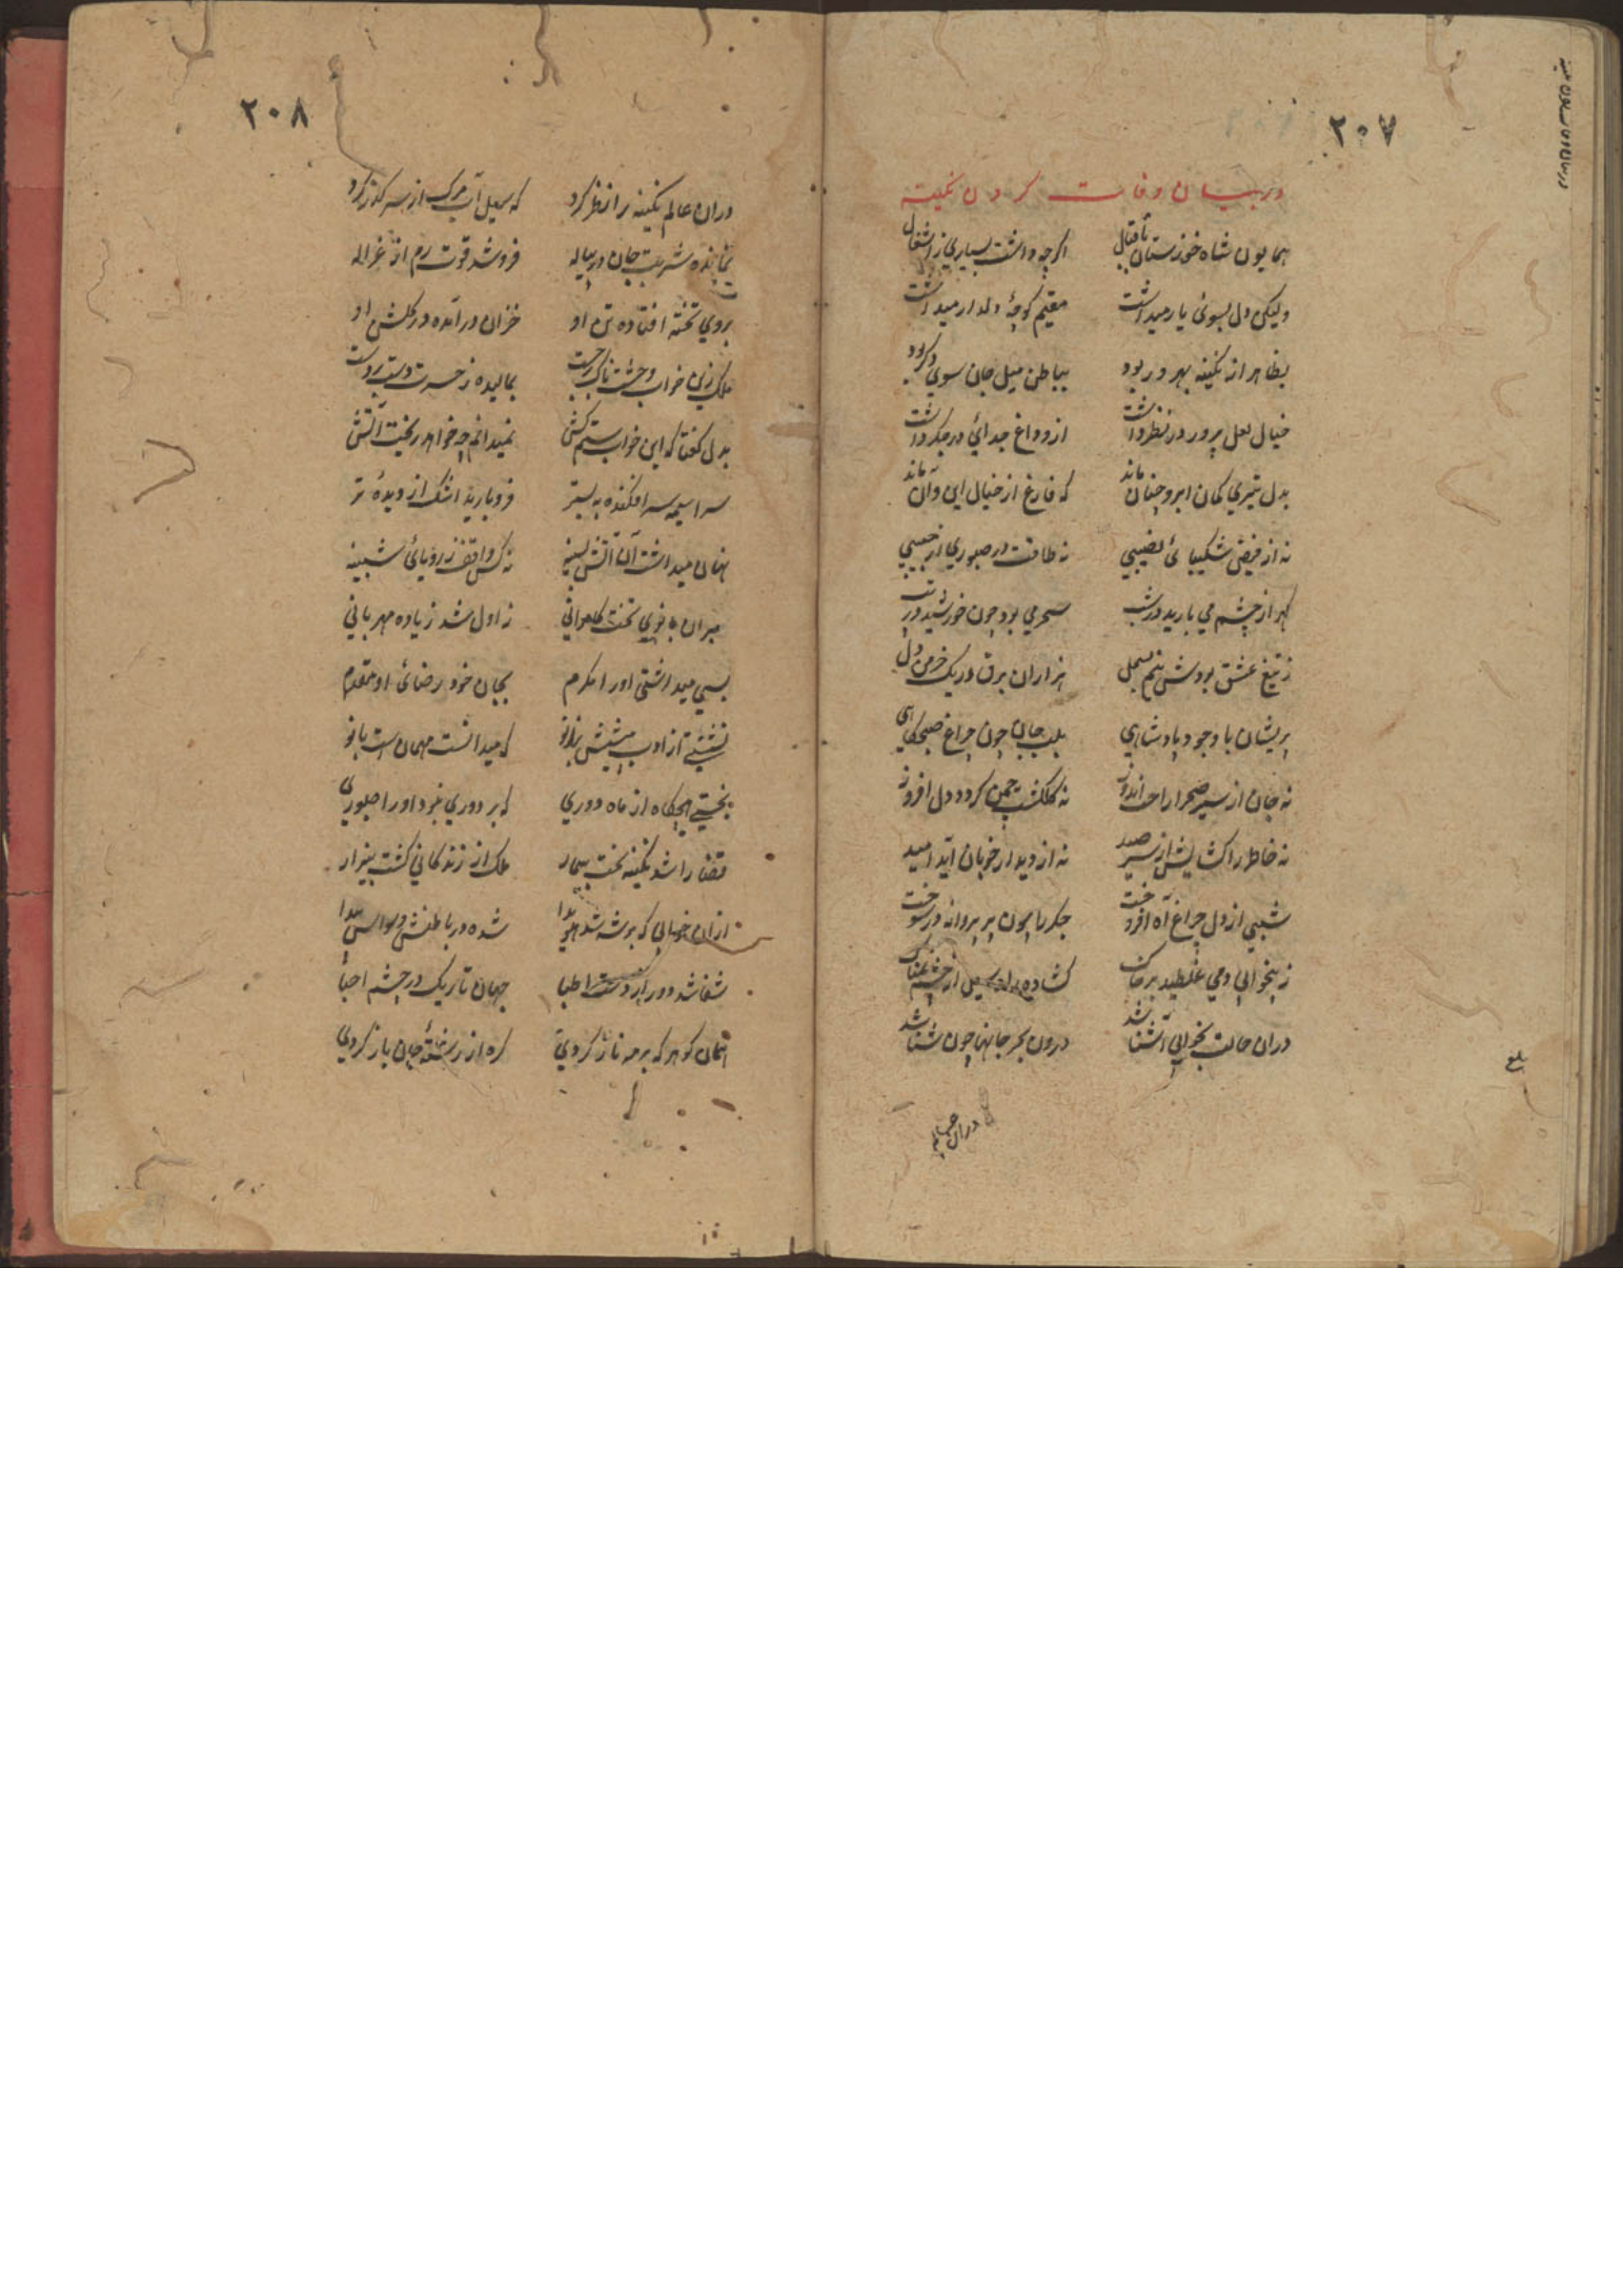 ۲۰۷
در بیان وفات کردن نگینه
همایون شاه خوزستان اقبال اگرچه داشت بسیاری ز اشغال
ولیکن دل بسوی یار میداشت مقیم کوچهٔ دلدار میداشت
بظاهر از نگینه بهره ور بود بباطن میل جان سوی دگر بود
خیال لعل پرور در نظر داشت از و داغ جدائی در جگر داشت
بدل تیری کمان ابرو چنان ماند که فارغ از خیال این و آن ماند
نه از فیض شکیبائی نصیبی نه طاقت در صبوری از حبیبی
گهر از چشم می بارید در شب سحر می بود چون خورشید در تب
ز تیغ عشق بودش نیم بسمل هزاران برق در یک خرمن دل
پریشان با وجود پادشاهی بلب جان چون چراغ صبحگاهی
نه جان از سیر صحرا راحت اندوز نه گلگشت چمن کردد دل افروز
نه خاطر را کشایش از سیر صید نه از دیدار خوبان آید امید
شبی از دل چراغ آه افروخت جگر را چون پر پروانه در سوخت
ز بیخوابی دمی غلطید بر خاک کشاده سیل از چشم غمناک
دران حالت بخوابی آشنا شد درون بحر جانها چون شنا شد
دران عالم
۲۰۸
دران عالم نگینه را نظر کرد که سیل آب مرگ از سر گذر کرد
نمانده شربت جان در پیاله فرو شد قوت رم از غزاله
بروی تخته افتاده تن او خزان در آمده در گلشن او
ملک زین خواب وحشتناک برجست بمالیده ز حسرت دست بر دست
بدل گفتا که این خواب ستم کش نمیدانم چه خواهد ریخت آتش
سراسیمه سر افکنده به بستر فرو بارید اشک از دیدهٔ تر
نهان میداشت آن آتش بسینه نه کس واقف ز رویائی شبینه
بران بانوی تخت کامرانی ز اول شد زیاده مهربانی
بسی میداشتی او را مکرم بجان خود رضائی او مقدم
نشستی از ادب پیشش بزانو که میدانست مهمان ست بانو
نجستی هیچگاه از ماه دوری که بر دوری نبود او را صبوری
قضا را شد نگینه سخت بیمار ملک از زندگانی گشت بیزار
ازان خوابی که بر شه شد هویدا شده در باطنش وسواس پیدا
شفا شد دور از دست اطبا جهان تاریک در چشم احبا
همان گوهر که بر مه ناز کردی گره از رشتهٔ جان باز کردی